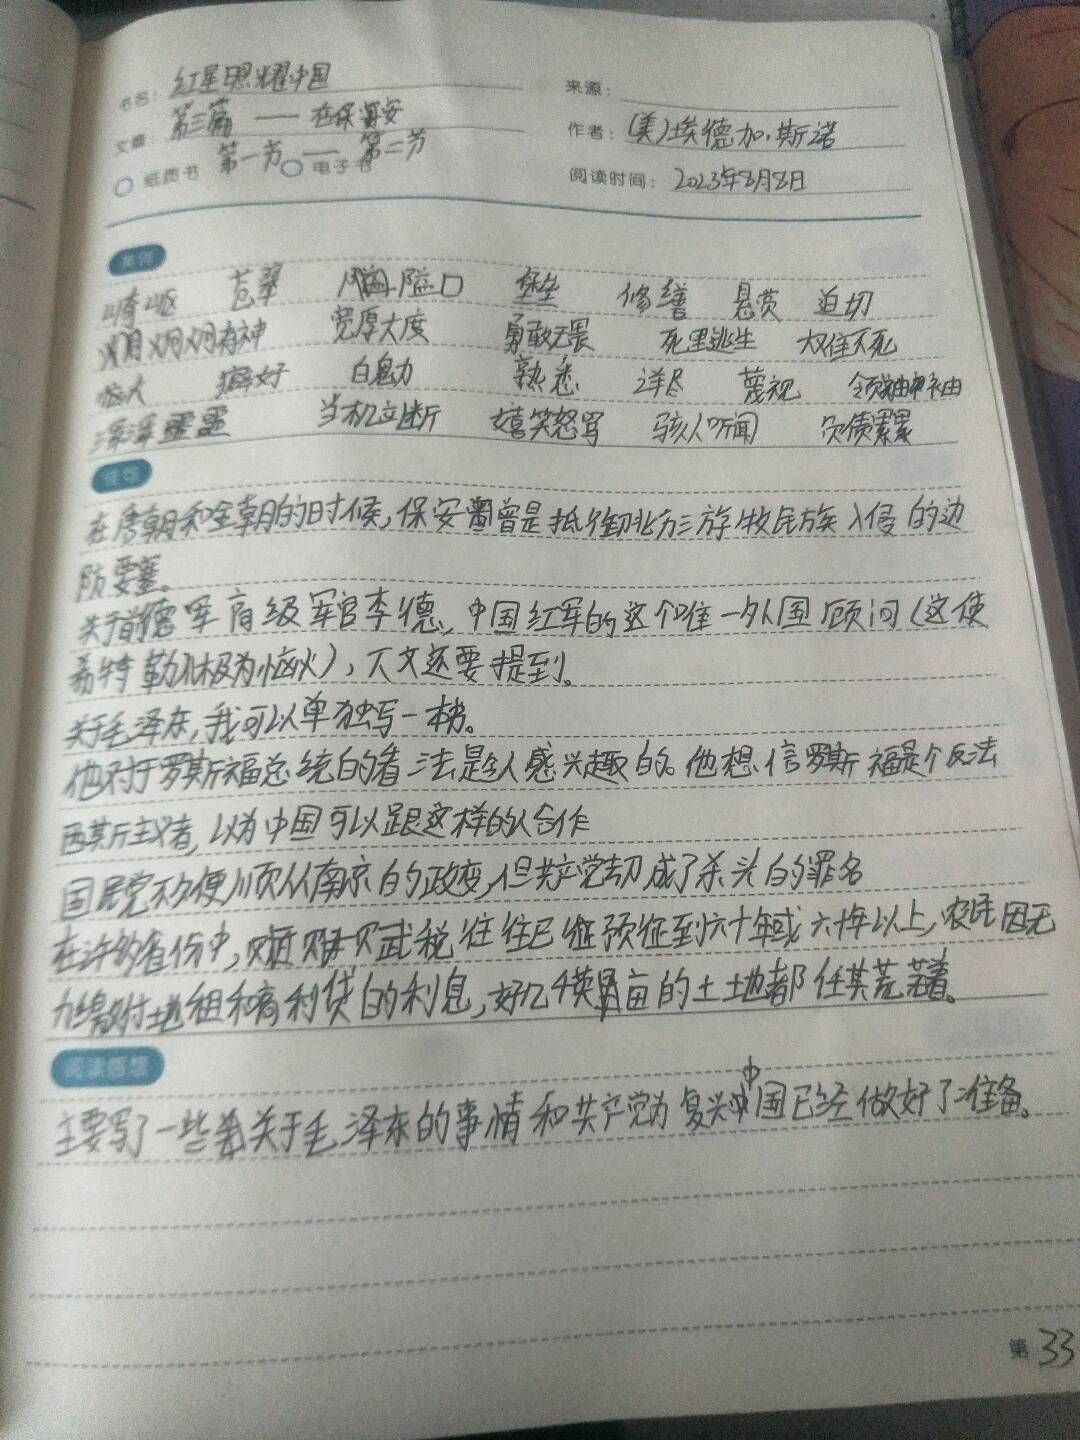 书名: 红星照耀中国
来源:
文章: 第三篇 —— 在保安
作者: (美)埃德加·斯诺
纸质书 电子书 第一节 — 第二节
阅读时间: 2023年8月8日
美词
崎岖 苍翠 胸 隘口 堡垒 修缮 悬赏 迫切
炯炯有神 宽厚大度 勇敢无畏 死里逃生 大难不死
恼火 癖好 自勉 熟悉 详尽 蔑视
浑浑噩噩 当机立断 嬉笑怒骂 骇人听闻 负债累累
佳句
在唐朝和金朝的时候,保安曾是抵御北方游牧民族入侵的边
防要塞。
关于前德军高级军官李德,中国红军的这个唯一外国顾问(这使
希特勒极为恼火),下文还要提到。
关于毛泽东,我可以单独写一本书。
他对于罗斯福总统的看法是令人感兴趣的。他想信罗斯福是个反法
西斯主义者,以为中国可以跟这样的人合作
国民党不久便顺从南京的政变,但共产党却成了杀头的罪名
在许多省份中,赋税往往已征预征到六十年或六十年以上,农民因无
力缴付地租和高利贷的利息,好几千英亩的土地都任其荒芜着。
阅读感想
主要写了一些关于毛泽东的事情和共产党为复兴中国已经做好了准备。
第 33